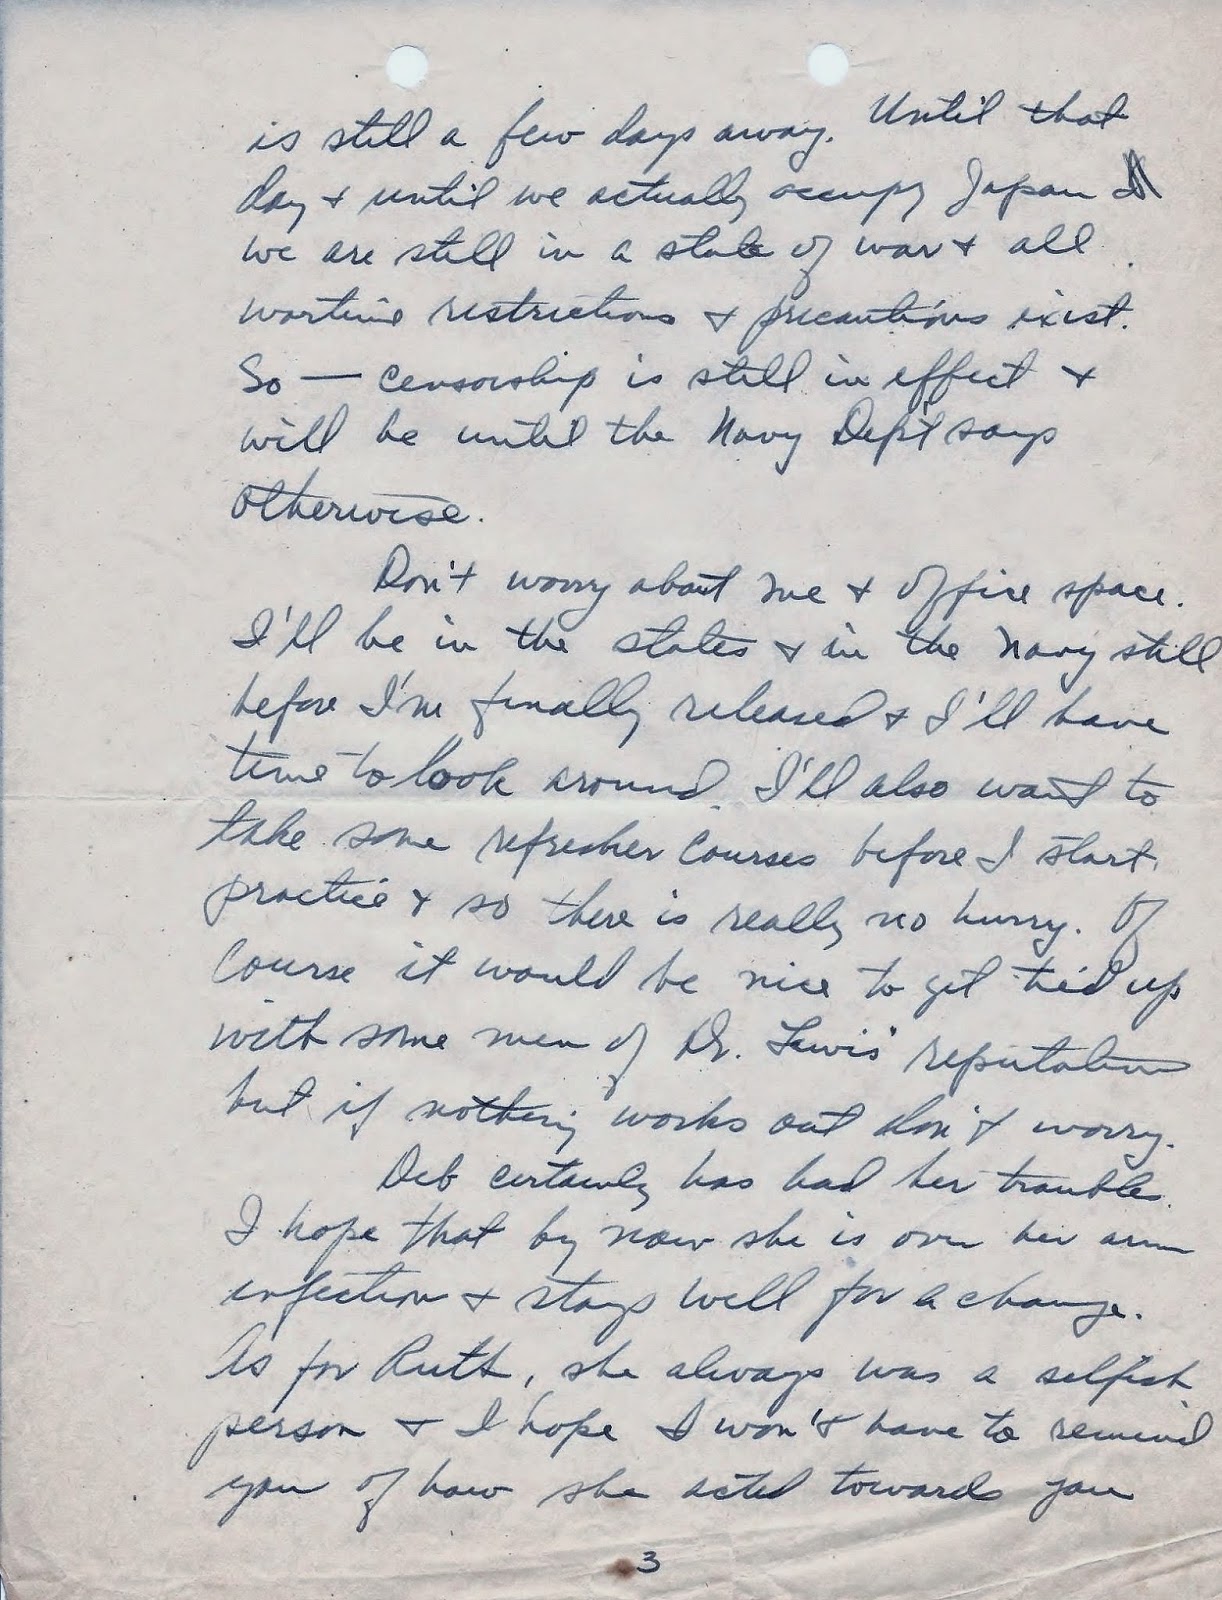 is still a few days away. Until that
day & until we actually occupy Japan
we are still in a state of war & all
wartime restrictions & precautions exist.
So — censorship is still in effect &
will be until the Navy Dep't says
otherwise.
Don't worry about me & office space.
I'll be in the states & in the Navy still
before I'm finally released & I'll have
time to look around. I'll also want to
take some refresher courses before I start
practice & so there is really no hurry. Of
course it would be nice to get tied up
with some men of Dr. Lewis' reputation
but if nothing works out don't worry.
Deb certainly has had her troubles.
I hope that by now she is over her arm
infection & stays well for a change.
As for Ruth, she always was a selfish
person & I hope I won't have to remind
you of how she acted towards you
3